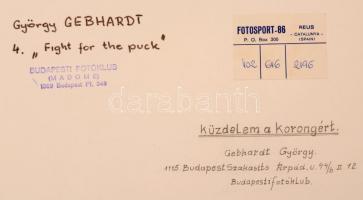 György GEBHARDT
4. „Fight for the puck"
BUDAPESTI FOTÓKLUB
(MADOME)
1369 Budapest Pf. 349
FOTOSPORT-86
P. O. Box 300
REUS
- CATALUNYA -
(SPAIN)
102 646 2196
darabanth
küzdelem a korongért.
Gebhardt György.
1115. Budapest Szakasits Árpád. u.
Budapesti fotóklub.